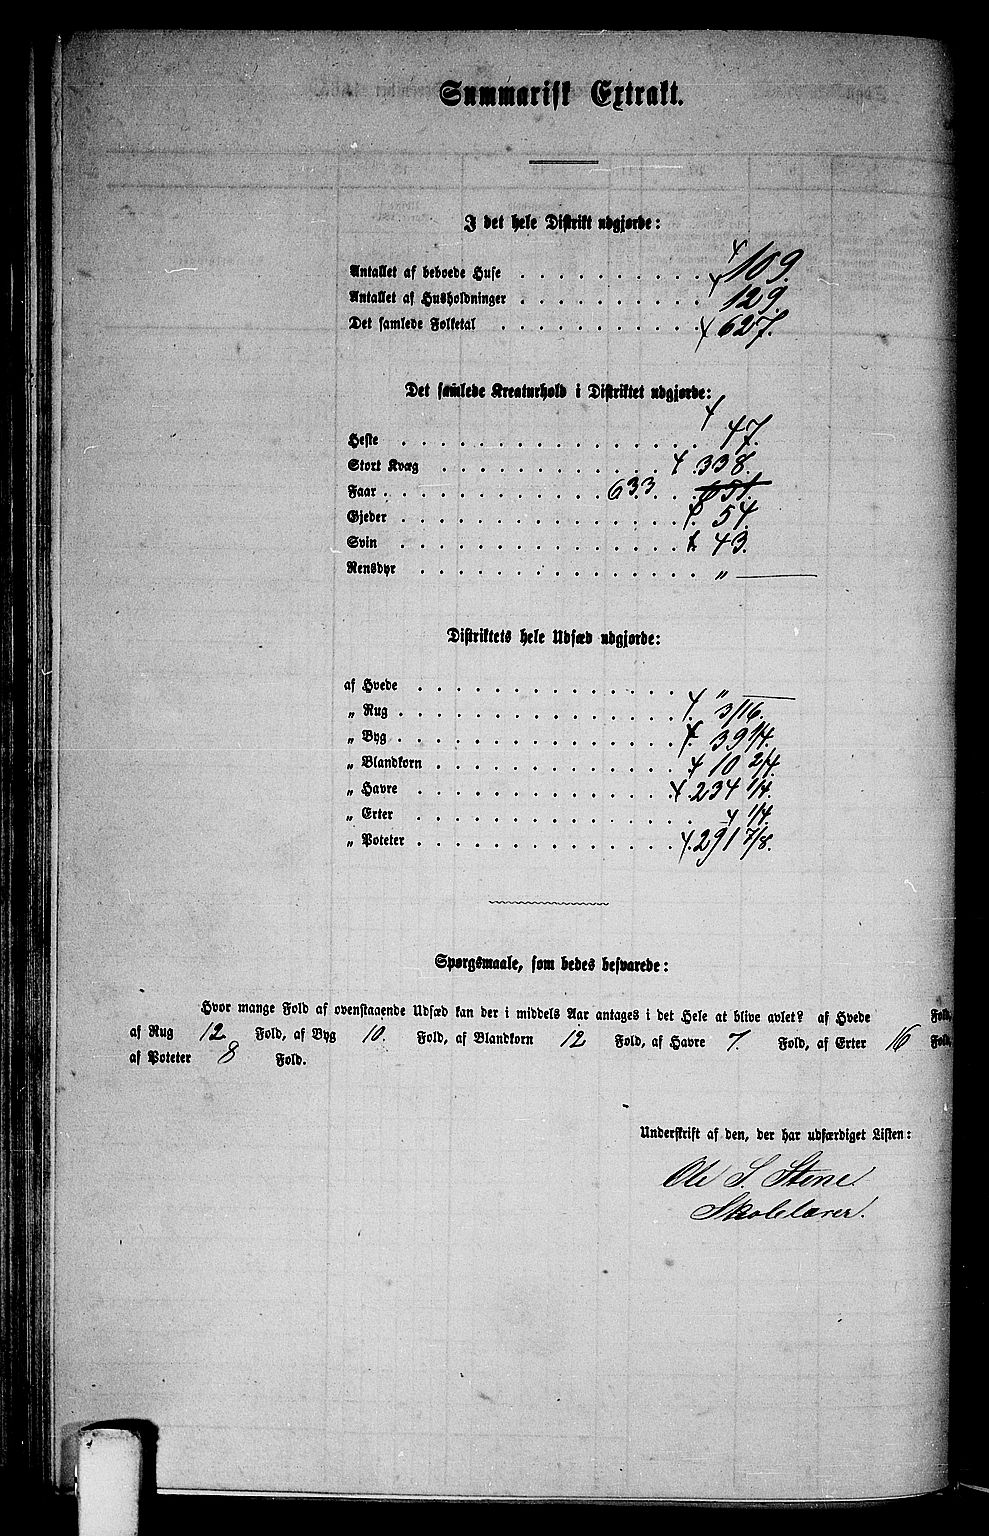 Summarisk Extrakt.
I det hele Distrikt udgjorde:
Antallet af beboede Huse . . . . . . . . . 109.
Antallet af Husholdninger . . . . . . . . . 129.
Det samlede Folketal . . . . . . . . . 627.
Det samlede Kreaturhold i Distriktet udgjorde:
Heste . . . . . . . . . 47.
Stort Kvæg . . . . . . . . . 338.
Faar . . . . . . . . . 633 651.
Gjeder . . . . . . . . . 54.
Svin . . . . . . . . . 43.
Rensdyr . . . . . . . . . „
Distriktets hele Udsæd udgjorde:
af Hvede . . . . . . . . . „
„ Rug . . . . . . . . . 3/16.
„ Byg . . . . . . . . . 39 1/4.
„ Blandkorn . . . . . . . . . 10 2/4.
„ Havre . . . . . . . . . 234 1/4.
„ Erter . . . . . . . . . 1/4.
„ Poteter . . . . . . . . . 291 7/8.
Spørgsmaale, som bedes besvarede:
Hvor mange Fold af ovenstaaende Udsæd kan der i middels Aar antages i det Hele at blive avlet? af Hvede Fold,
af Rug 12 Fold, af Byg 10. Fold, af Blandkorn 12 Fold, af Havre 7. Fold, af Erter 16 Fold,
af Poteter 8 Fold.
Underskrift af den, der har udfærdiget Listen:
Ole S. Stene
Skolelærer.